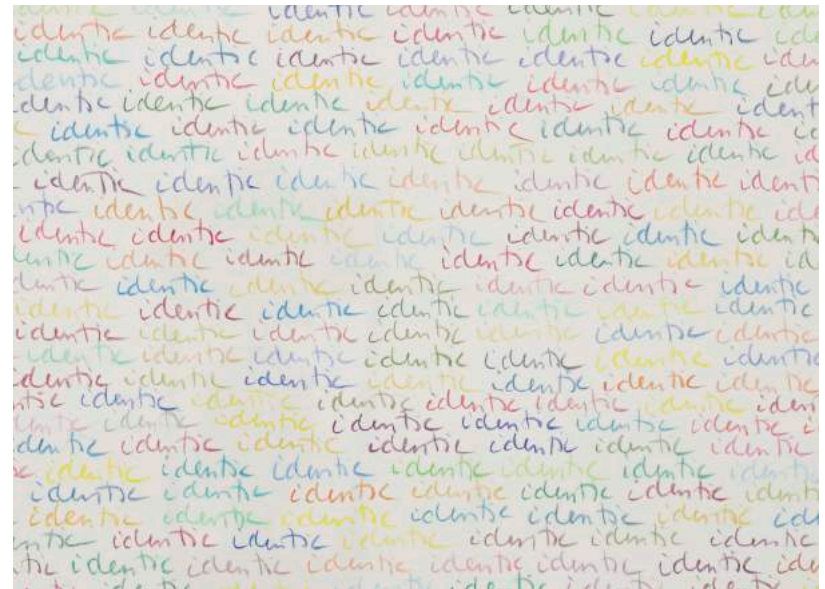 identic identic identic
identic identic identic identic identic identic ide
identic identic identic identic identic identic iden
dentic identic identic identic identic identic iden
identic identic identic identic identic identic ident
c identic identic identic identic identic identic ic
identic identic identic identic identic identic identic id
identic identic identic identic identic identic identi
ntic identic identic identic identic identic identic ide
identic identic identic identic identic identic identic
entic identic identic identic identic identic identic id
dentic identic identic identic identic identic identic
identic identic identic identic identic identic identic
identic identic identic identic identic identic identic
identic identic identic identic identic identic identic
identic identic identic identic identic identic identic
ntic identic identic identic identic identic identic iden
ntic identic identic identic identic identic identic i
dentic identic identic identic identic identic identic
c identic identic identic identic identic identic identic
identic identic identic identic identic identic identi
identic identic identic identic identic identic ide
entic identic identic identic identic identic identic
tic identic identic identic identic identic identic ide